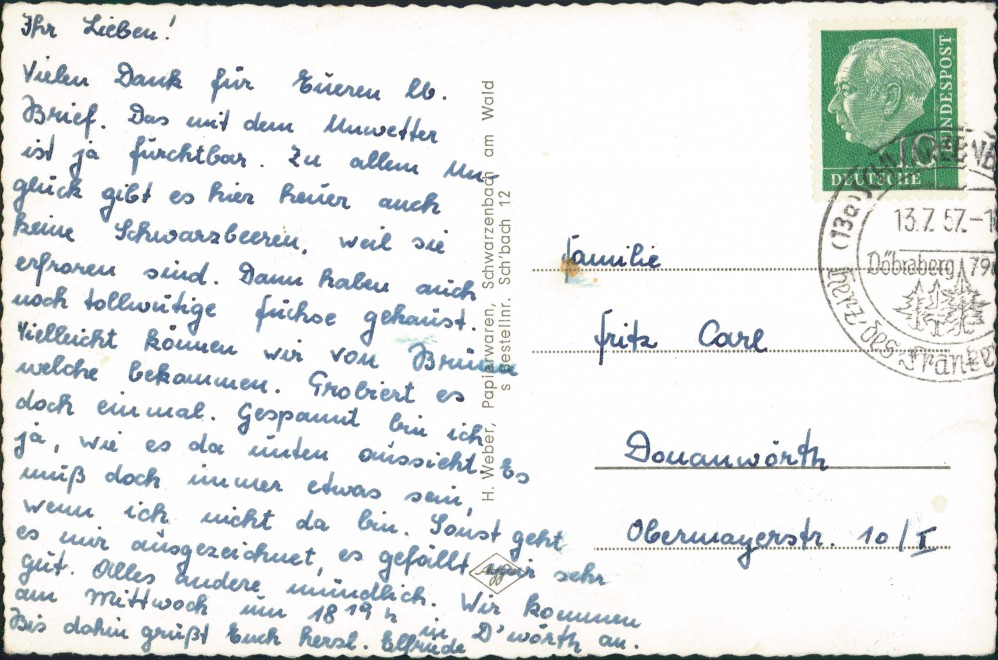 Ihr Lieben!
Vielen Dank für Eueren lb.
Brief. Das mit dem Unwetter
ist ja furchtbar. Zu allem Un-
glück gibt es hier heuer auch
keine Schwarzbeeren, weil sie
erfroren sind. Dann haben auch
noch tollwütige Füchse gehaust.
Vielleicht können wir von
welche bekommen. Probiert es
doch einmal. Gespannt bin ich
ja, wie es da unten aussieht. Es
muß doch immer etwas sein,
wenn ich nicht da bin. Sonst geht
es mir ausgezeichnet, es gefällt mir sehr
gut. Alles andere mündlich. Wir kommen
am Mittwoch um 18 19 h in D'wörth an.
Bis dahin grüßt Euch herzl. Elfriede
H. Weber, Papierwaren, Schwarzenbach am Wald
s Bestellnr. Sch'bach 12
Agfa
DEUTSCHE
BUNDESPOST
10
(13a)
13.7.57.-1
Döbraberg 79
Familie
Fritz Carl
Donauwörth
Obermayerstr. 10/I